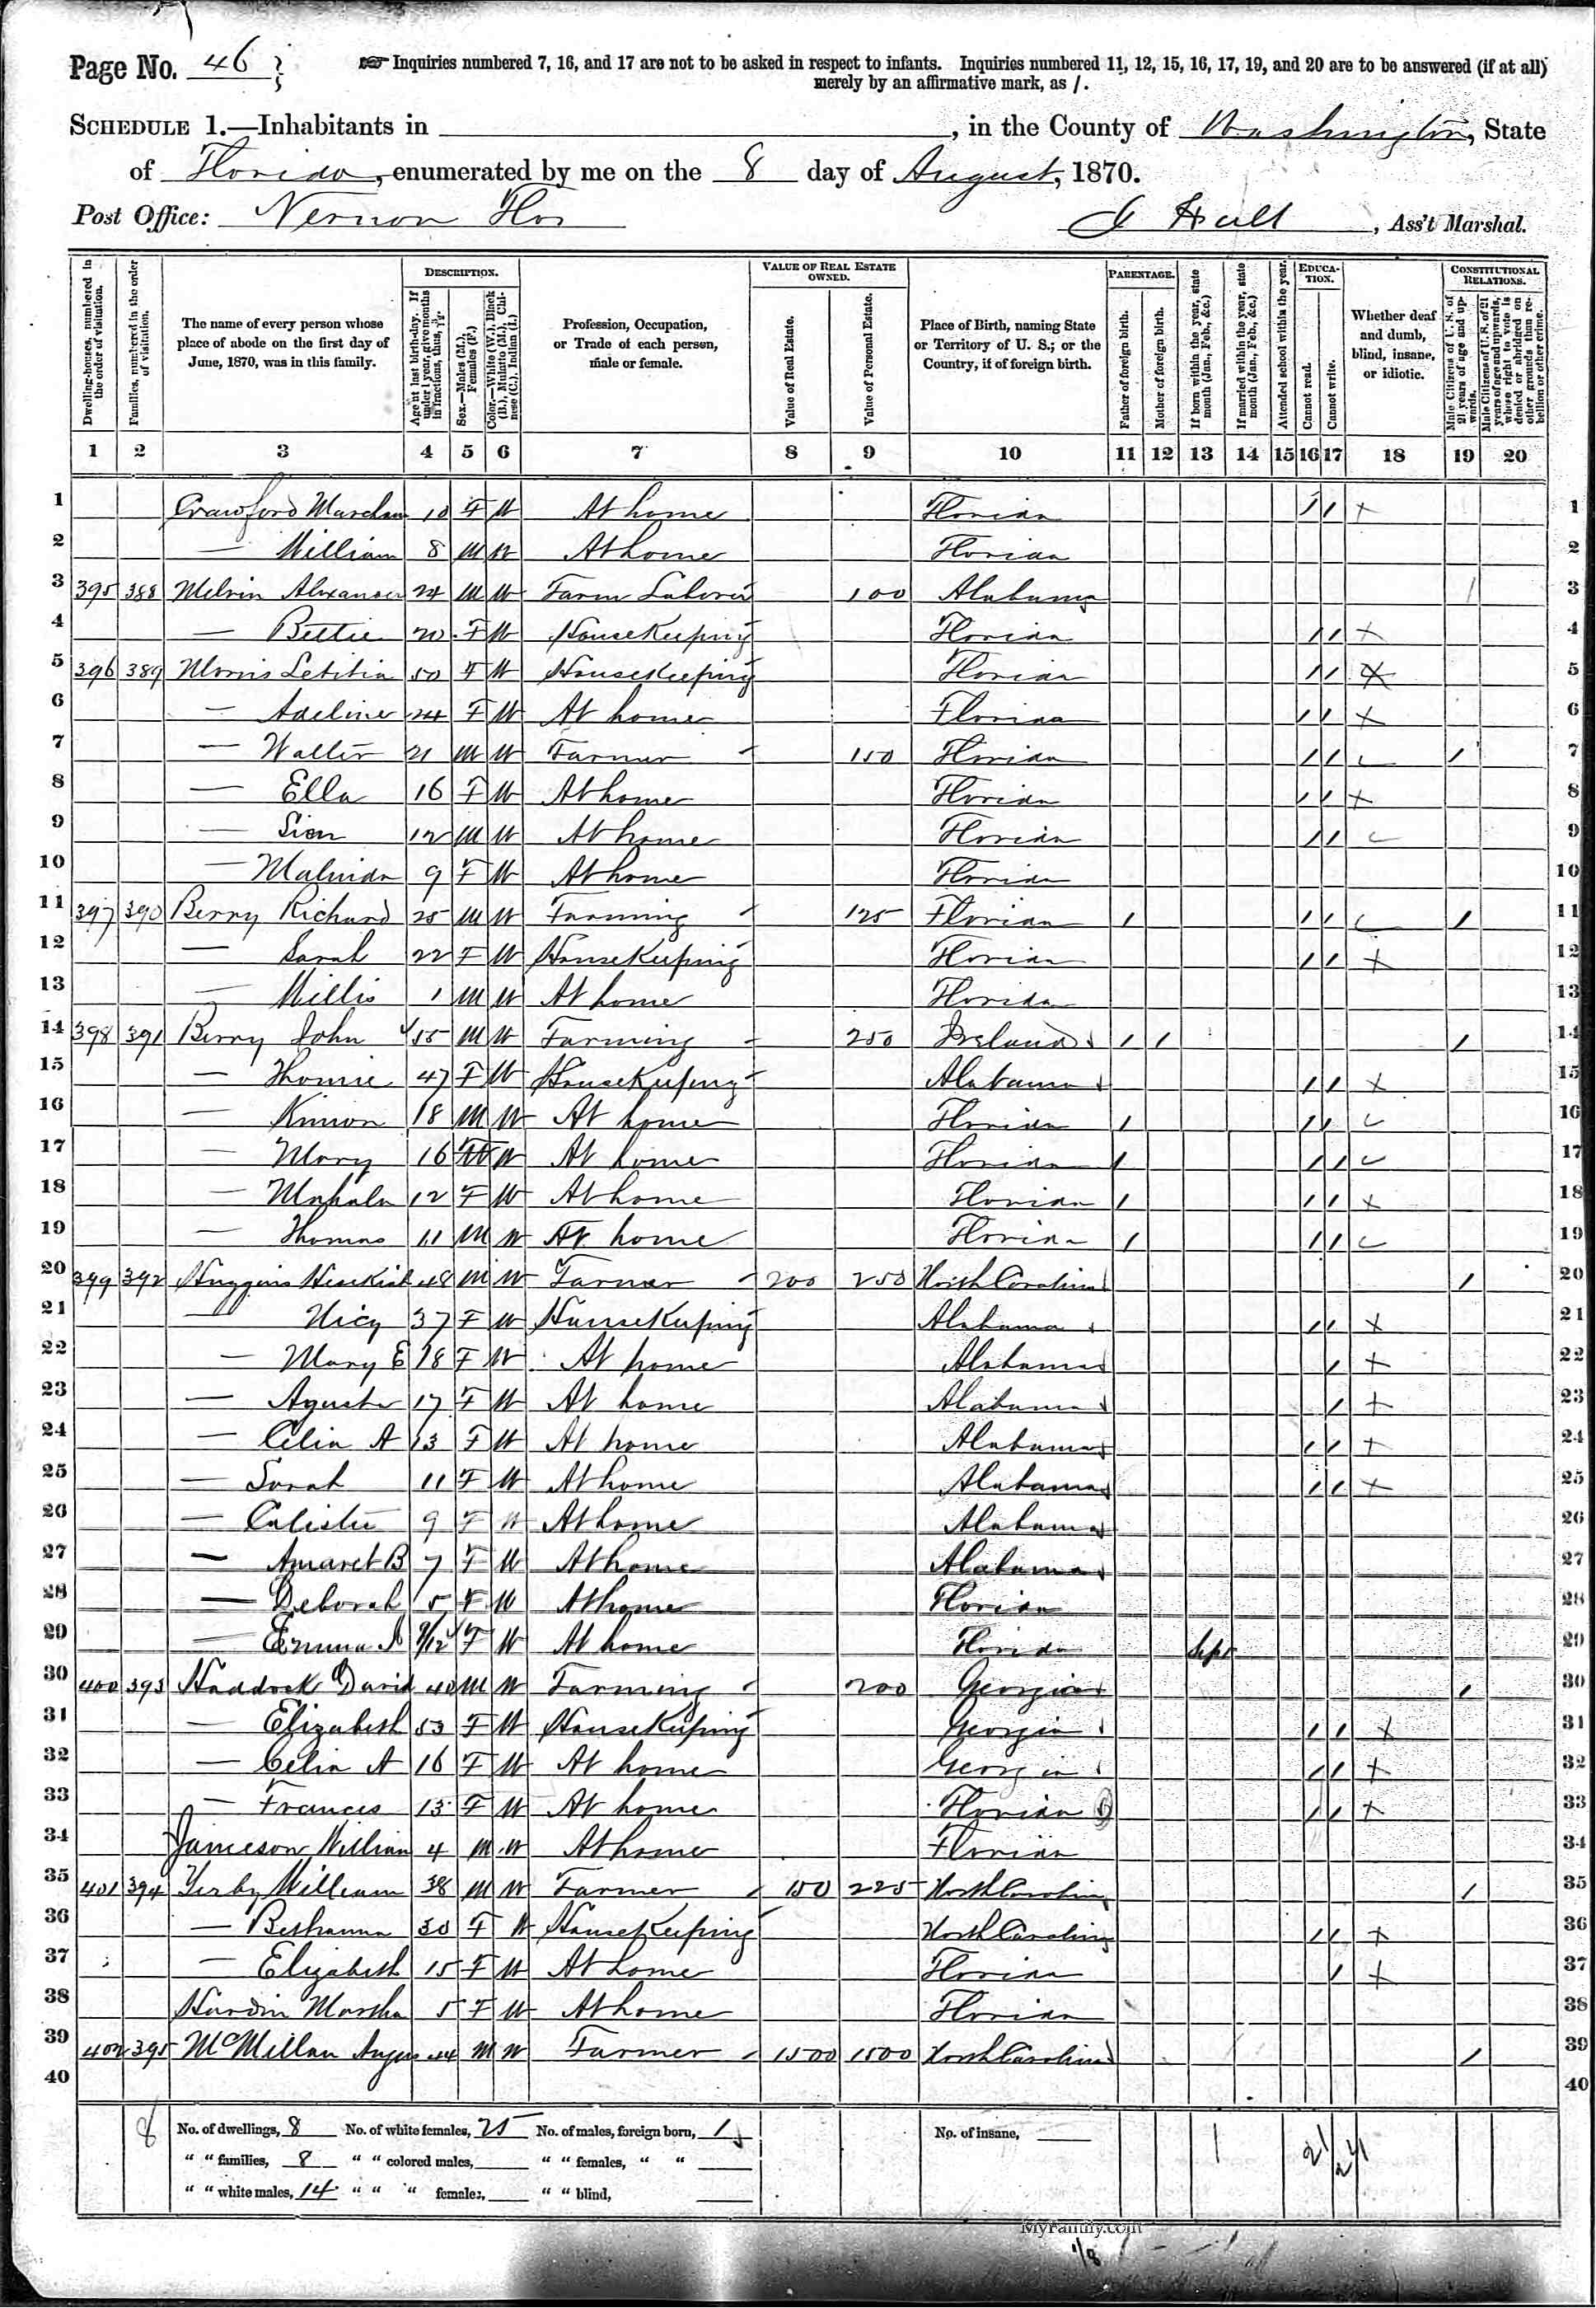 Page No. 46
☞ Inquiries numbered 7, 16, and 17 are not to be asked in respect to infants. Inquiries numbered 11, 12, 15, 16, 17, 19, and 20 are to be answered (if at all)
merely by an affirmative mark, as /.
SCHEDULE 1.—Inhabitants in , in the County of Washington, State
of Florida, enumerated by me on the 8 day of August, 1870.
Post Office: Vernon Flo
J Hull, Ass't Marshal.
Dwelling-houses, numbered in the order of visitation.
Families, numbered in the order of visitation.
The name of every person whose place of abode on the first day of June, 1870, was in this family.
DESCRIPTION.
Age at last birth-day. If under 1 year, give months in fractions, thus, 3/12.
Sex.—Males (M.), Females (F.)
Color.—White (W.), Black (B.), Mulatto (M.), Chinese (C.), Indian (I.)
Profession, Occupation, or Trade of each person, male or female.
VALUE OF REAL ESTATE OWNED.
Value of Real Estate.
Value of Personal Estate.
Place of Birth, naming State or Territory of U. S.; or the Country, if of foreign birth.
PARENTAGE.
Father of foreign birth.
Mother of foreign birth.
If born within the year, state month (Jan., Feb., &c.)
If married within the year, state month (Jan., Feb., &c.)
Attended school within the year.
EDUCATION.
Cannot read.
Cannot write.
Whether deaf and dumb, blind, insane, or idiotic.
CONSTITUTIONAL RELATIONS.
Male Citizens of U. S. of 21 years of age and upwards.
Male Citizens of U. S. of 21 years of age and upwards, whose right to vote is denied or abridged on other grounds than rebellion or other crime.
1 2 3 4 5 6 7 8 9 10 11 12 13 14 15 16 17 18 19 20
1 Crawford 10 F W At home Florida / / x 1
2 — William 8 M W At home Florida 2
3 395 388 Melvin Alexander 24 M W Farm Laborer 100 Alabama / 3
4 — Bettie 20 F W HouseKeeping Florida / / x 4
5 396 389 Morris Letitia 50 F W HouseKeeping Florida / / x 5
6 — Adeline 24 F W At home Florida / / x 6
7 — Walter 21 M W Farmer 150 Florida / / / 7
8 — Ella 16 F W At home Florida / / x 8
9 — Sion 12 M W At home Florida / / 9
10 — Malinda 9 F W At home Florida 10
11 397 390 Berry Richard 25 M W Farming 125 Florida / / / / 11
12 — Sarah 22 F W HouseKeeping Florida / / x 12
13 — Willis 1 M W At home Florida 13
14 398 391 Berry John 55 M W Farming 250 Ireland / / / 14
15 — 47 F W HouseKeeping Alabama / / x 15
16 — 18 M W At home Florida / / / 16
17 — Mary 16 W At home Florida / / / 17
18 — Mahala 12 F W At home Florida / / / x 18
19 — Thomas 11 M W At home Florida / / / 19
20 399 392 Huggins Hesekiah 48 M W Farmer 200 250 North Carolina / 20
21 — Nicy 37 F W HouseKeeping Alabama / / x 21
22 — Mary E 18 F W At home Alabama / x 22
23 — Agusta 17 F W At home Alabama / x 23
24 — Celia A 13 F W At home Alabama / / x 24
25 — Sarah 11 F W At home Alabama / / x 25
26 — 9 F W At home Alabama 26
27 — B 7 F W At home Alabama 27
28 — Deborah 5 F W At home Florida 28
29 — Emma 9/12 F W At home Florida Sept 29
30 400 393 Haddock David 40 M W Farming 200 Georgia / 30
31 — Elizabeth 53 F W HouseKeeping Georgia / / x 31
32 — Celia A 16 F W At home Georgia / / x 32
33 — Frances 13 F W At home Florida / / x 33
34 Jameson William 4 M W At home Florida 34
35 401 394 Yerby William 38 M W Farmer 150 225 North Carolina / 35
36 — Bethanna 30 F W HouseKeeping North Carolina / / x 36
37 — Elizabeth 15 F W At home Florida / x 37
38 Hardin Martha 5 F W At home Florida 38
39 402 395 McMillan Angus 44 M W Farmer 1500 1500 North Carolina / 39
40 40
8 No. of dwellings, 8 No. of white females, 25 No. of males, foreign born, 1 No. of insane, 1 21 24
" " families, 8 " " colored males, " " females, " "
" " white males, 14 " " " females, " " blind,
MyFamily.com
1/8